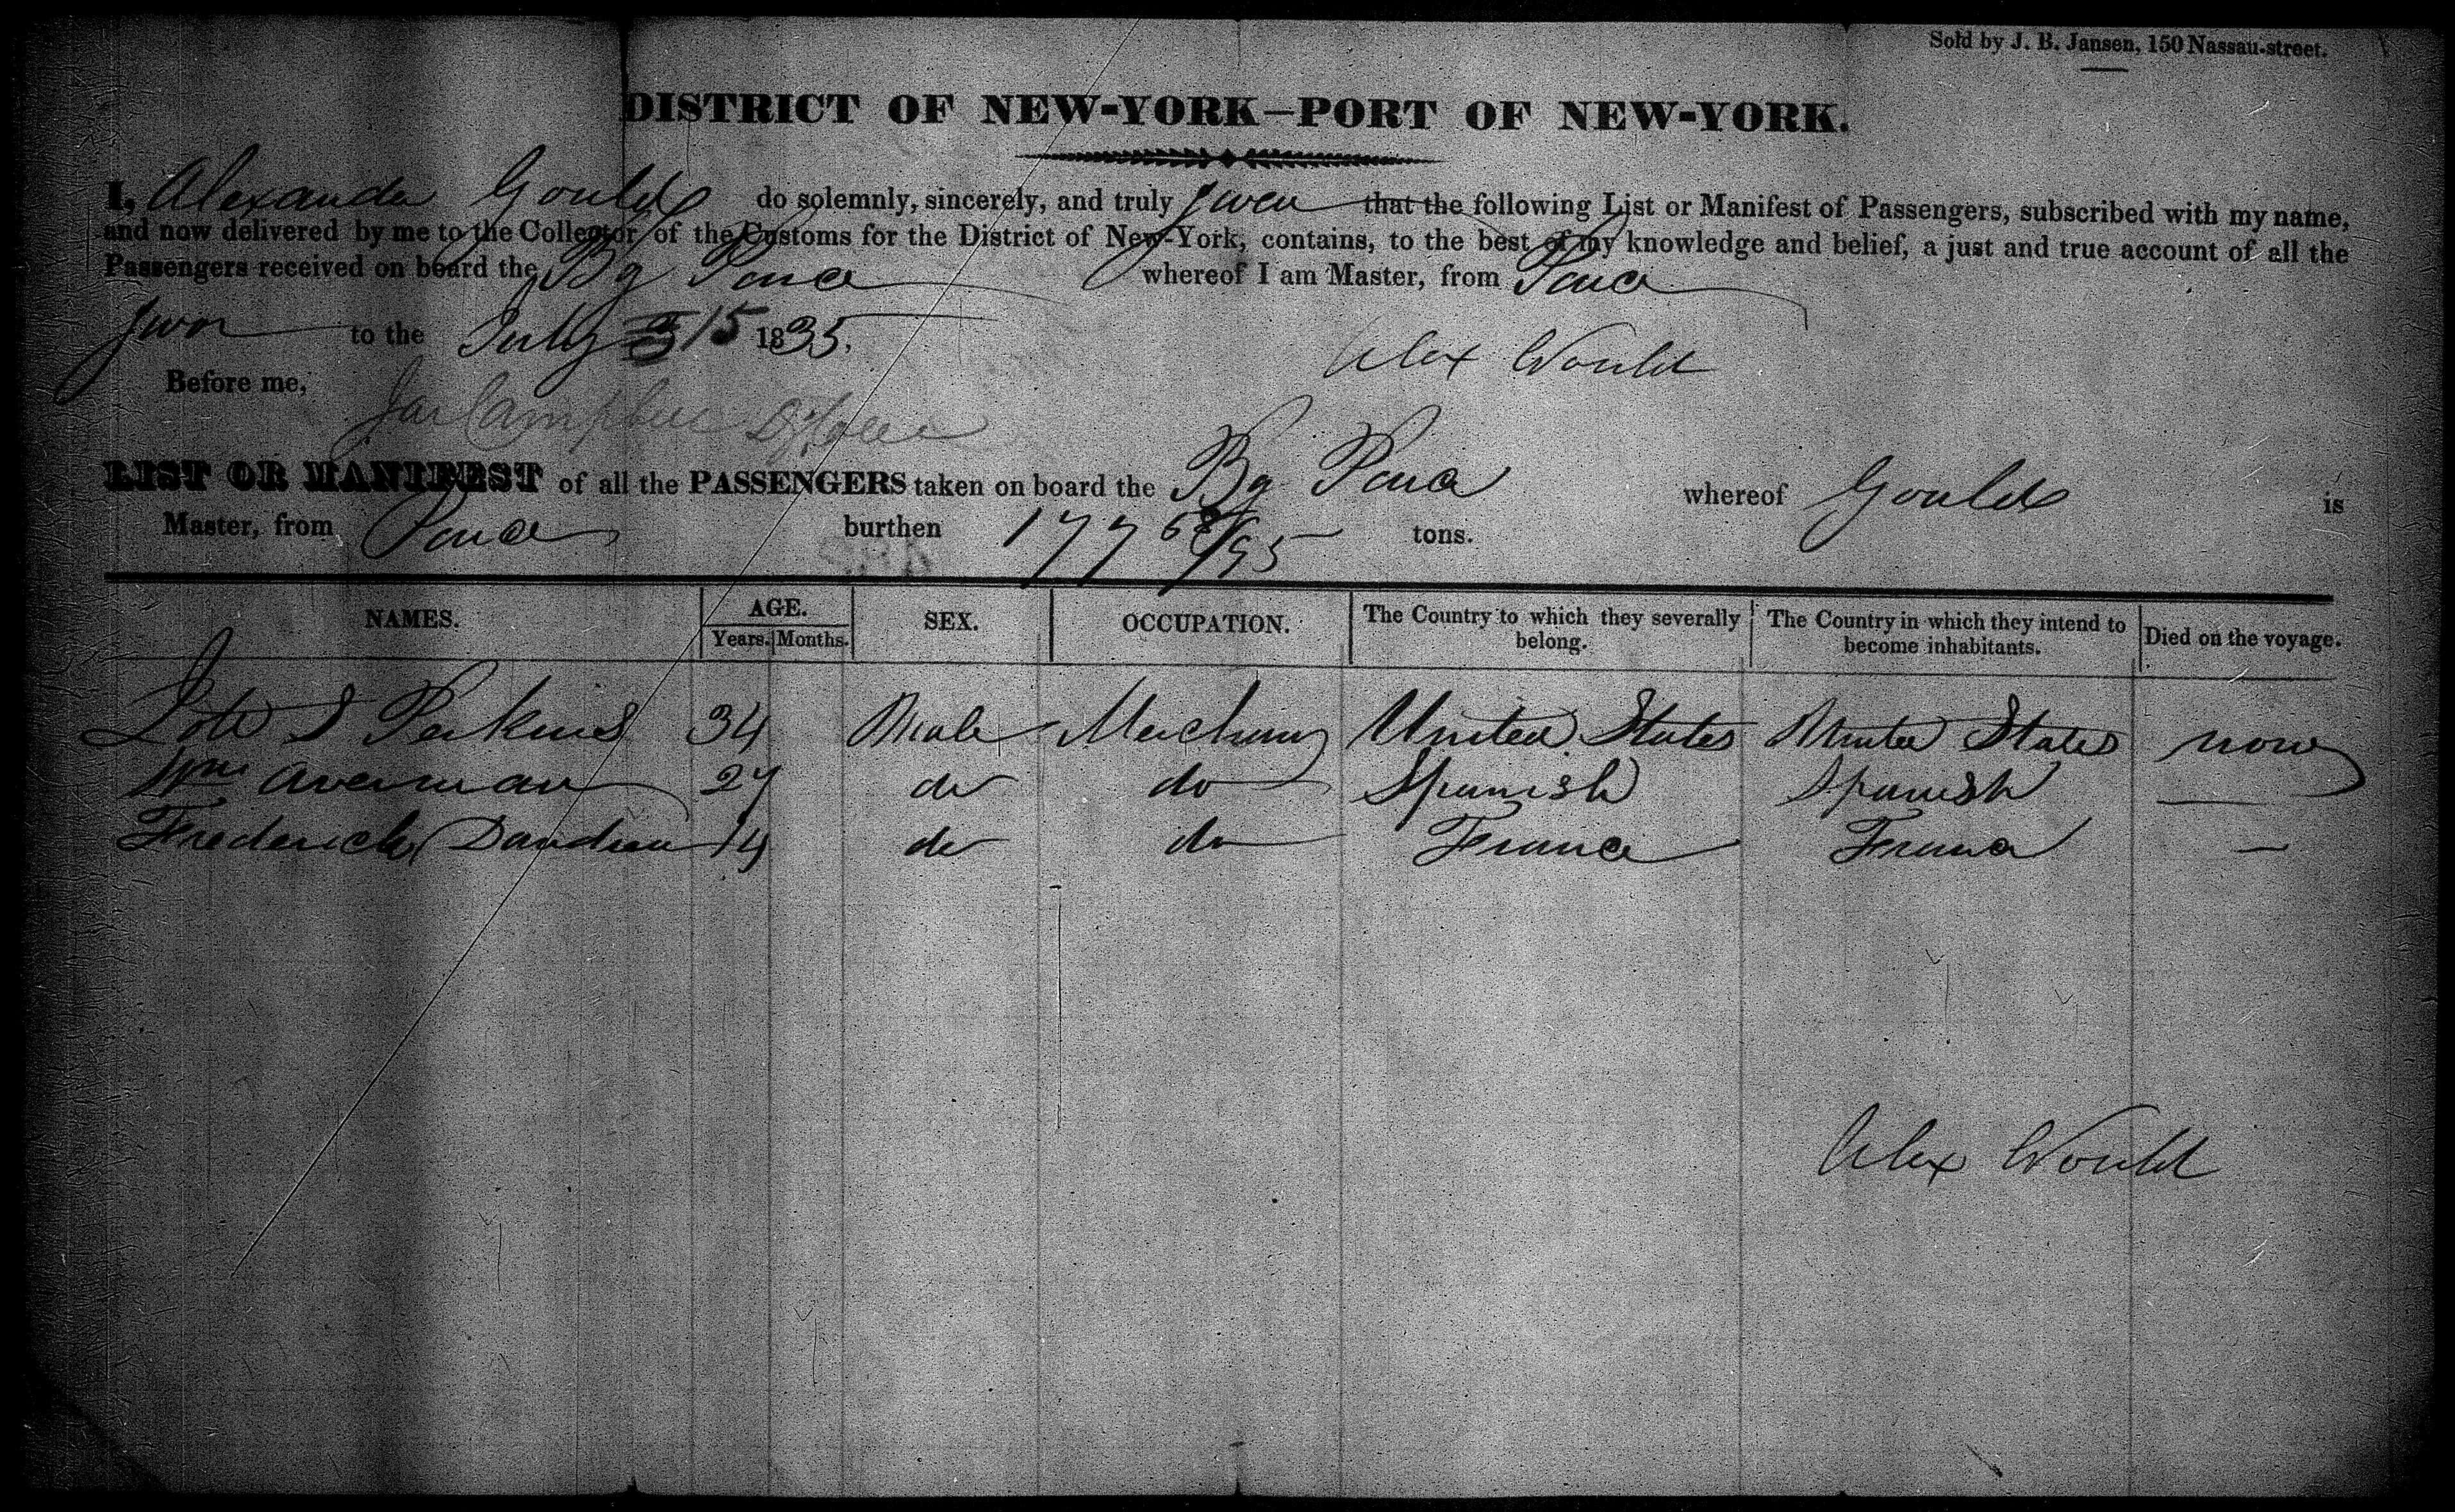 Sold by J. B. Jansen, 150 Nassau-street.
DISTRICT OF NEW-YORK—PORT OF NEW-YORK.
I, Alexander Gould do solemnly, sincerely, and truly swear that the following List or Manifest of Passengers, subscribed with my name,
and now delivered by me to the Collector of the Customs for the District of New-York, contains, to the best of my knowledge and belief, a just and true account of all the
Passengers received on board the Bg Ponce whereof I am Master, from Ponce
Sworn to the July 15 1835.
Alex Gould
Before me,
Jas Campbell
LIST OR MANIFEST of all the PASSENGERS taken on board the Bg Ponce whereof Gould is
Master, from Ponce burthen 177 68/95 tons.
NAMES. AGE. Years. Months. SEX. OCCUPATION. The Country to which they severally belong. The Country in which they intend to become inhabitants. Died on the voyage.
Perkins 34 Male Merchant United States United States none
Wm Averman 27 do do Spanish Spanish —
Frederick 14 do do France France —
Alex Gould